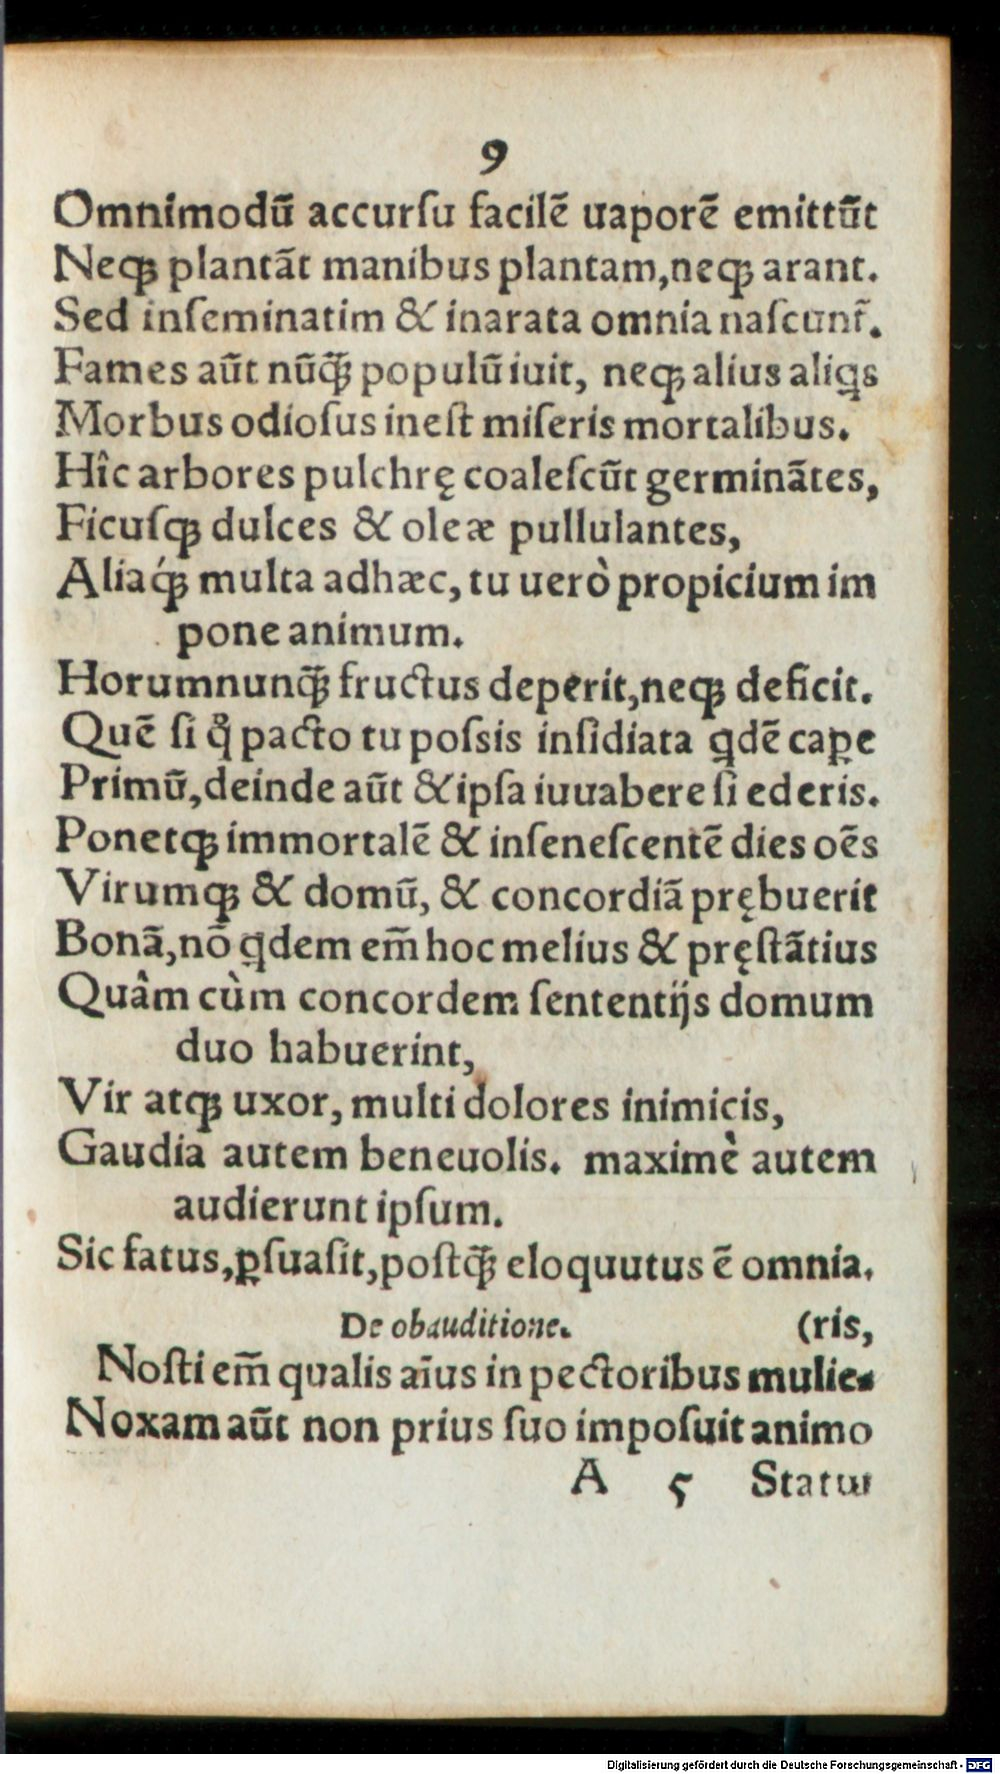 9
Omnimodũ accurſu facilẽ uaporẽ emittũt
Neqꝫ plantãt manibus plantam,neqꝫ arant.
Sed inſeminatim & inarata omnia naſcunt᷑.
Fames aũt nũꝙ̃ populũ iuit, neqꝫ alius aliꝗs
Morbus odioſus ineſt miſeris mortalibus.
Hîc arbores pulchrę coaleſcũt germinãtes,
Ficuſqꝫ dulces & oleæ pullulantes,
Aliaq́ꝫ multa adhæc, tu uerò propicium im
pone animum.
Horumnunꝙ̃ fructus deperit,neqꝫ deficit.
Quẽ ſi qͦ pacto tu poſsis inſidiata ꝗdẽ caꝑe
Primũ,deinde aũt & ipſa iuuabere ſi ederis.
Ponetqꝫ immortalẽ & inſeneſcentẽ dies oẽs
Virumqꝫ & domũ, & concordiã prębuerit
Bonã,nõ ꝗdem em̃ hoc melius & pręſtãtius
Quâm cùm concordem ſententijs domum
duo habuerint,
Vir atqꝫ uxor, multi dolores inimicis,
Gaudia autem beneuolis. maximè autem
audierunt ipſum.
Sic fatus,ꝑſuaſit,poſtꝙ̃ eloquutus ẽ omnia.
De obauditione. (ris,
Noſti em̃ qualis aĩus in pectoribus mulie-
Noxam aũt non prius ſuo impoſuit animo
A 5 Statur
Digitalisierung gefördert durch die Deutsche Forschungsgemeinschaft - DFG